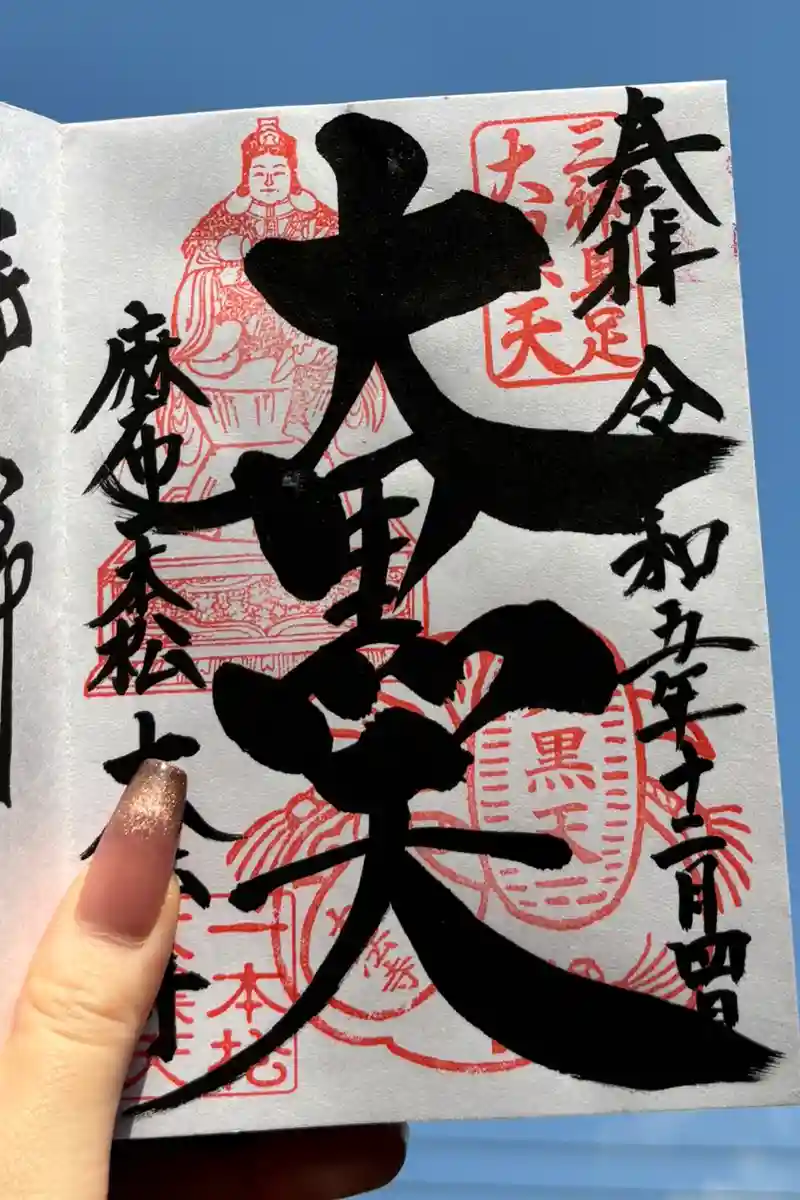 奉拝
令和五年十二月四日
三神具足
大黒天
大黒天
黒天
麻布一本松
大法寺
一本松